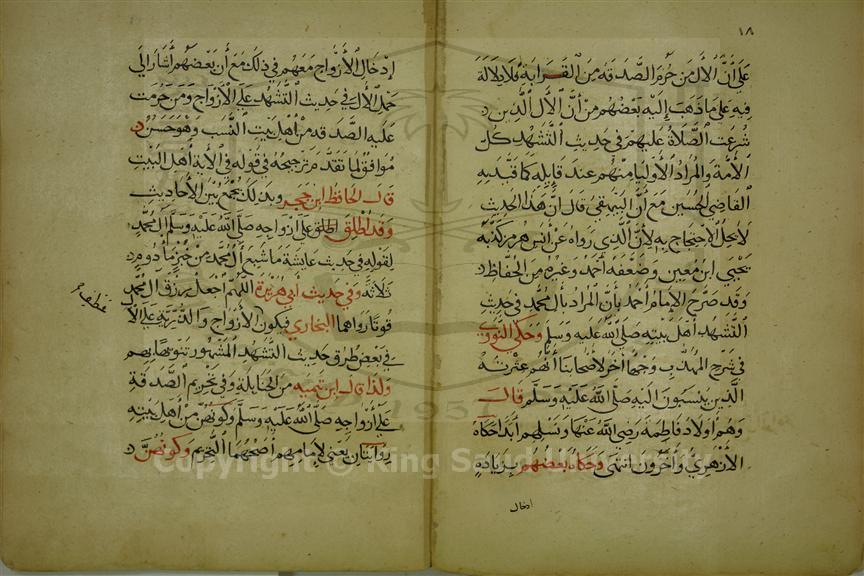 ١٨
على أن الأل من حرم الصدقه من القرابة فلا دلالة
فيه على ما ذهب إليه بعضهم من أن الأل الذين
شرعت الصلاة عليهم في حديث التشهد كل
الأمة والمراد الأوليا منهم عند قايله كما قيد به
القاضي الحسين مع أن البيهقي قال ان هذا الحديث
لا يحل الاحتجاج به لأن الذي رواه عن انس هرمز كذبه
يحيى ابن معين وضعفه أحمد وغيره من الحفاظ
وقد صرح الإمام أحمد بأن المراد بأل محمد في حديث
التشهد أهل بيته صلى الله عليه وسلم وحكى النووي
في شرح المهذب وجها أخر لأصحابنا أنهم عترته
الذين ينسبون اليه صلى الله عليه وسلم قال
وهم أولاد فاطمة رضي الله عنها ونسلهم أبدا حكاه
الأزهري وأخرون انتهى وحكاه بعضهم بزيادة
ادخال
إدخال الأزواج معهم في ذلك مع أن بعضهم أشار إلى
حمل الأل في حديث التشهد على الأزواج ومن حرمت
عليه الصدقه من أهل بيت النسب وهو حسن
موافق لما تقدم مر ترجيحه في قوله في الأية أهل البيت
قال الحافظ ابن حجر وبذلك يجمع بين الأحاديث
وقد أطلق اطلق على أزواجه صلى الله عليه وسلم أل محمد
لقوله في حديث عايشة ما شبع أل محمد من خبز مأدوم
ثلاثة وفي حديث أبي هريرة اللهم اجعل رزق أل محمد
قوتا رواهما البخاري فيكون الأزواج والذرية على الأل
في بعض طرق حديث التشهد المشهور تنويها بهم
ولذا قال ابن تيميه من الحنابلة وفي تحريم الصدقة
على أزواجه صلى الله عليه وسلم وكونهن من أهل بيته
روايتان يعني لإمامهم أصحهما التحريم وكونهن